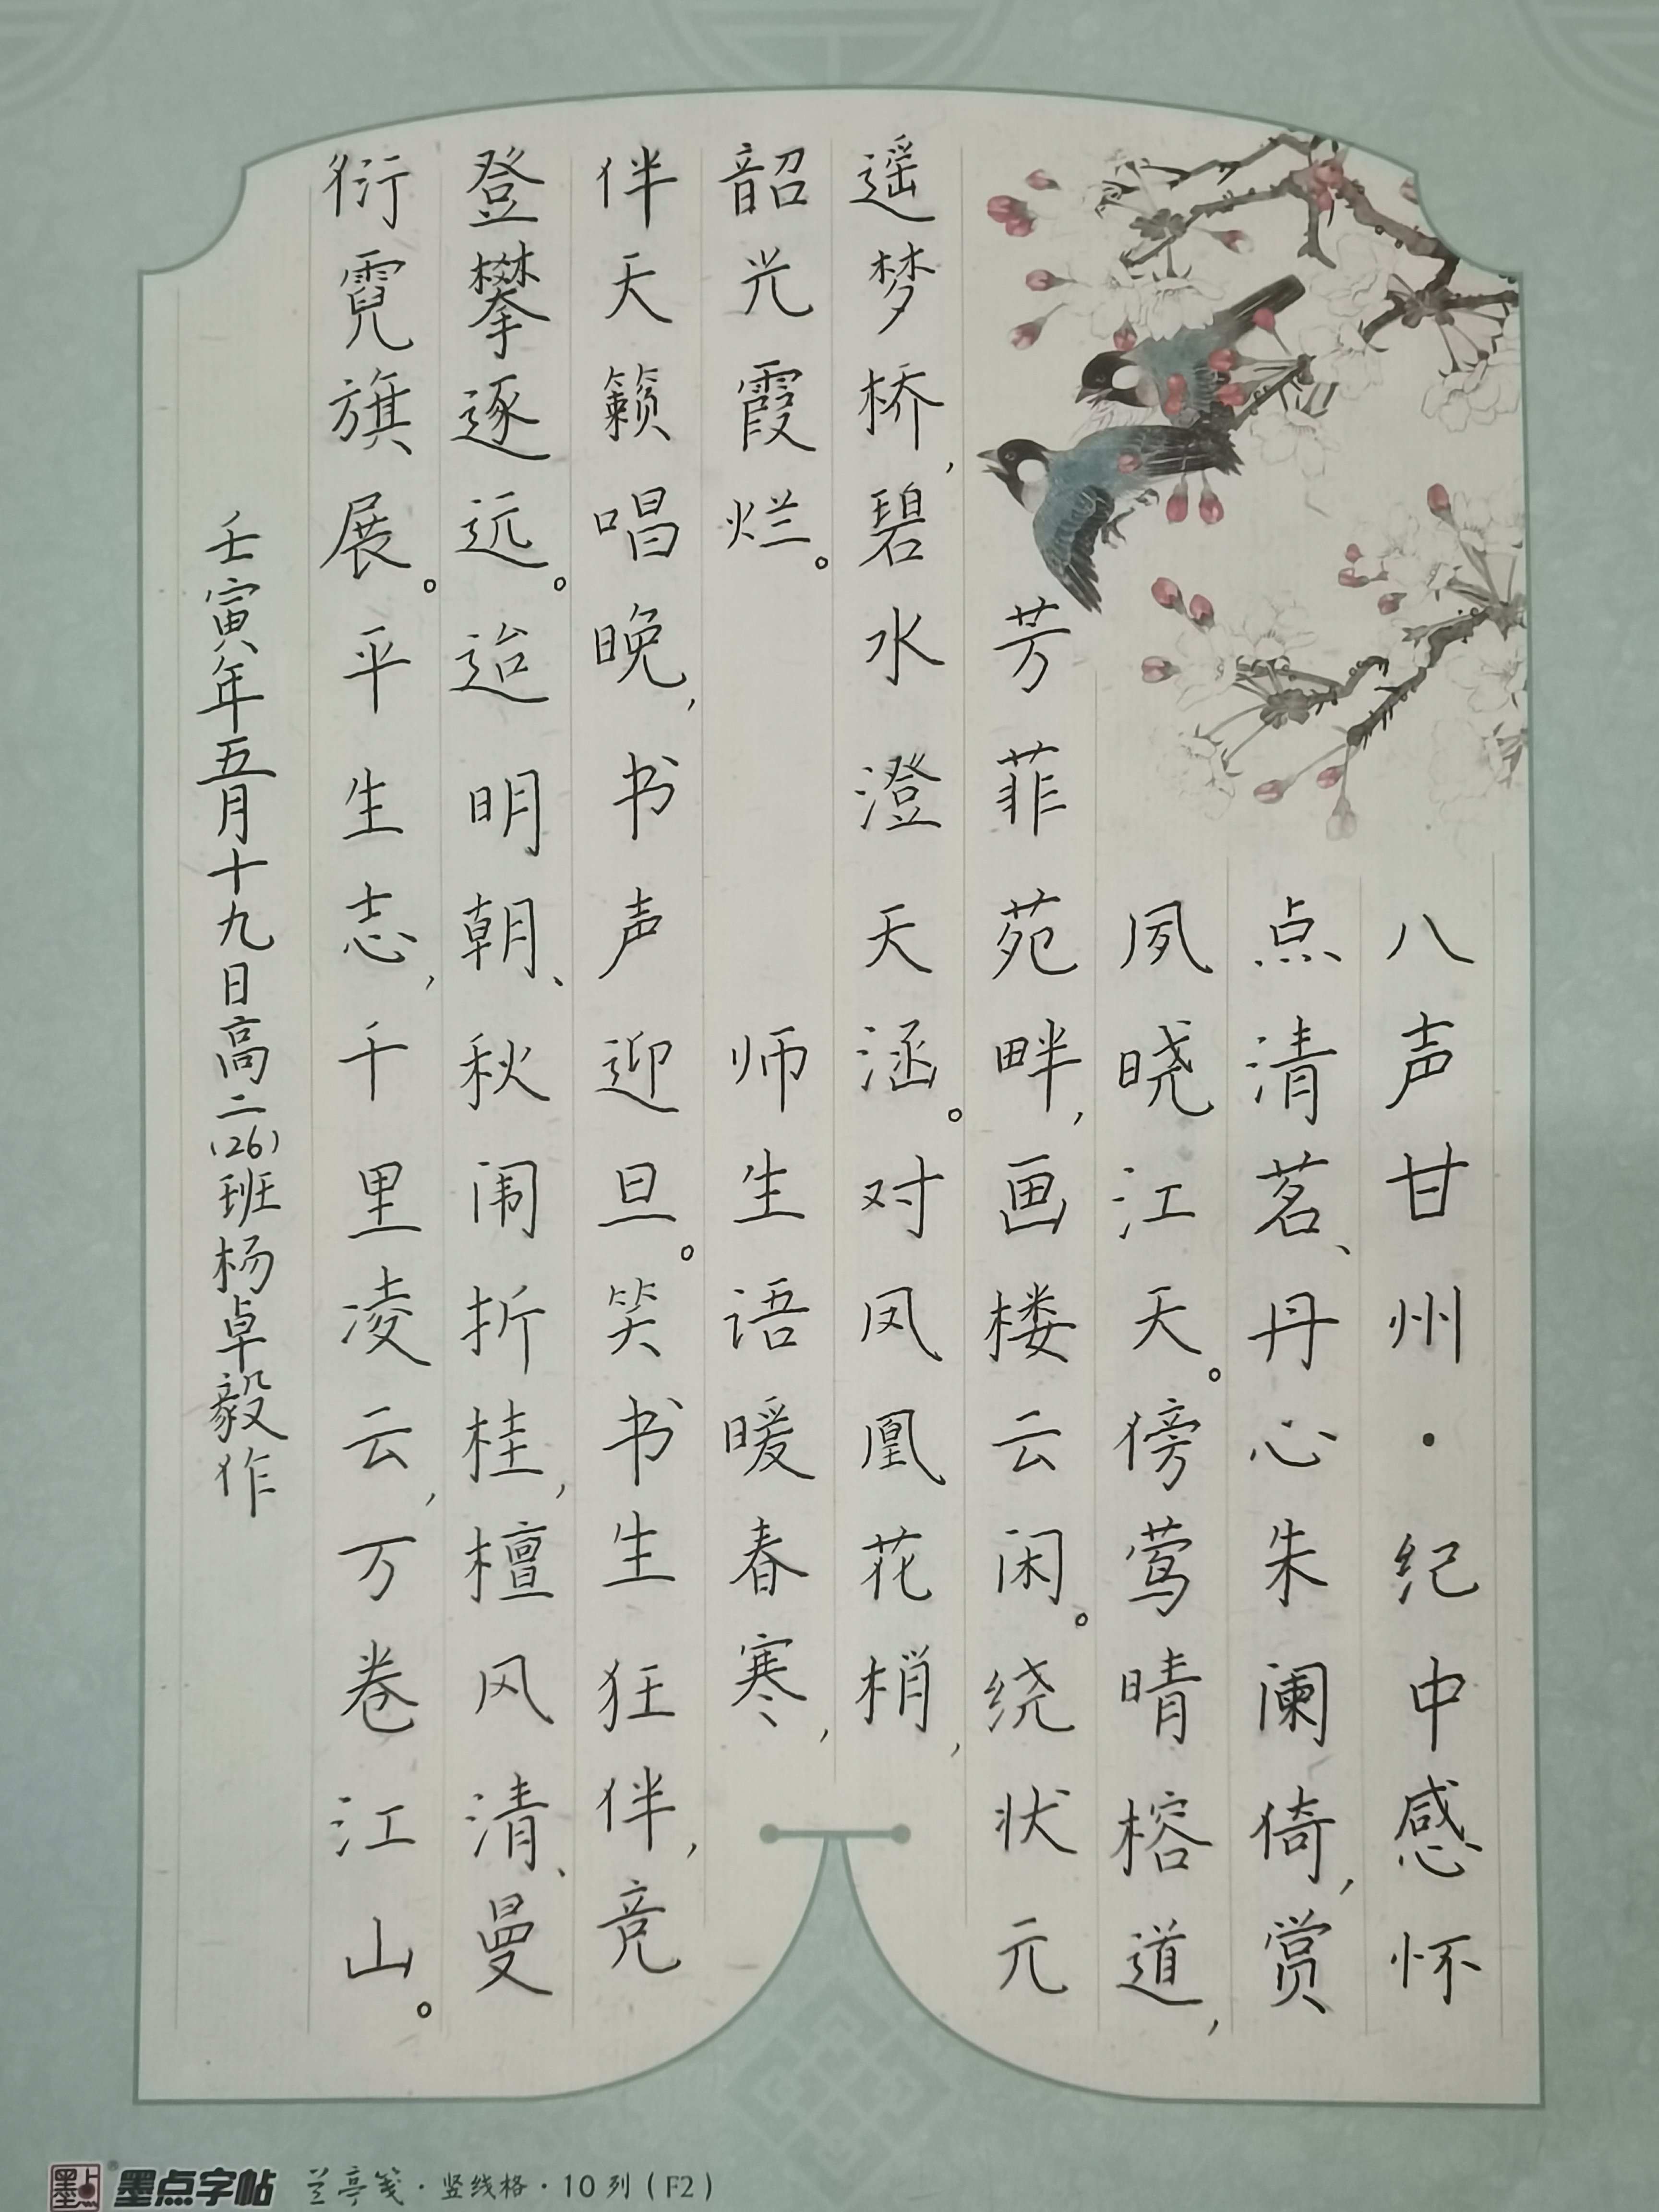 八声甘州·纪中感怀
点清茗、丹心朱阑倚，赏
夙晓江天。傍莺晴榕道，
芳菲苑畔，画楼云闲。绕状元
遥梦桥，碧水澄天涵。对凤凰花梢，
韶光霞烂。 师生语暖春寒，
伴天籁唱晚，书声迎旦。笑书生狂伴，竞
登攀逐远。迨明朝、秋闱折桂，檀风清、曼
衍霓旗展。平生志，千里凌云，万卷江山。
壬寅年五月十九日高二(26)班杨卓毅作
墨点字帖 兰亭笺·竖线格·10列（F2）